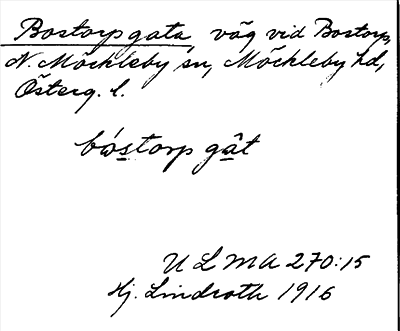 Bostorp gata, väg vid Bostorp,
N. Möckleby sn, Möckleby hd,
Österg. l.
bóstorp gât
ULMA 270:15
Hj. Lindroth 1916